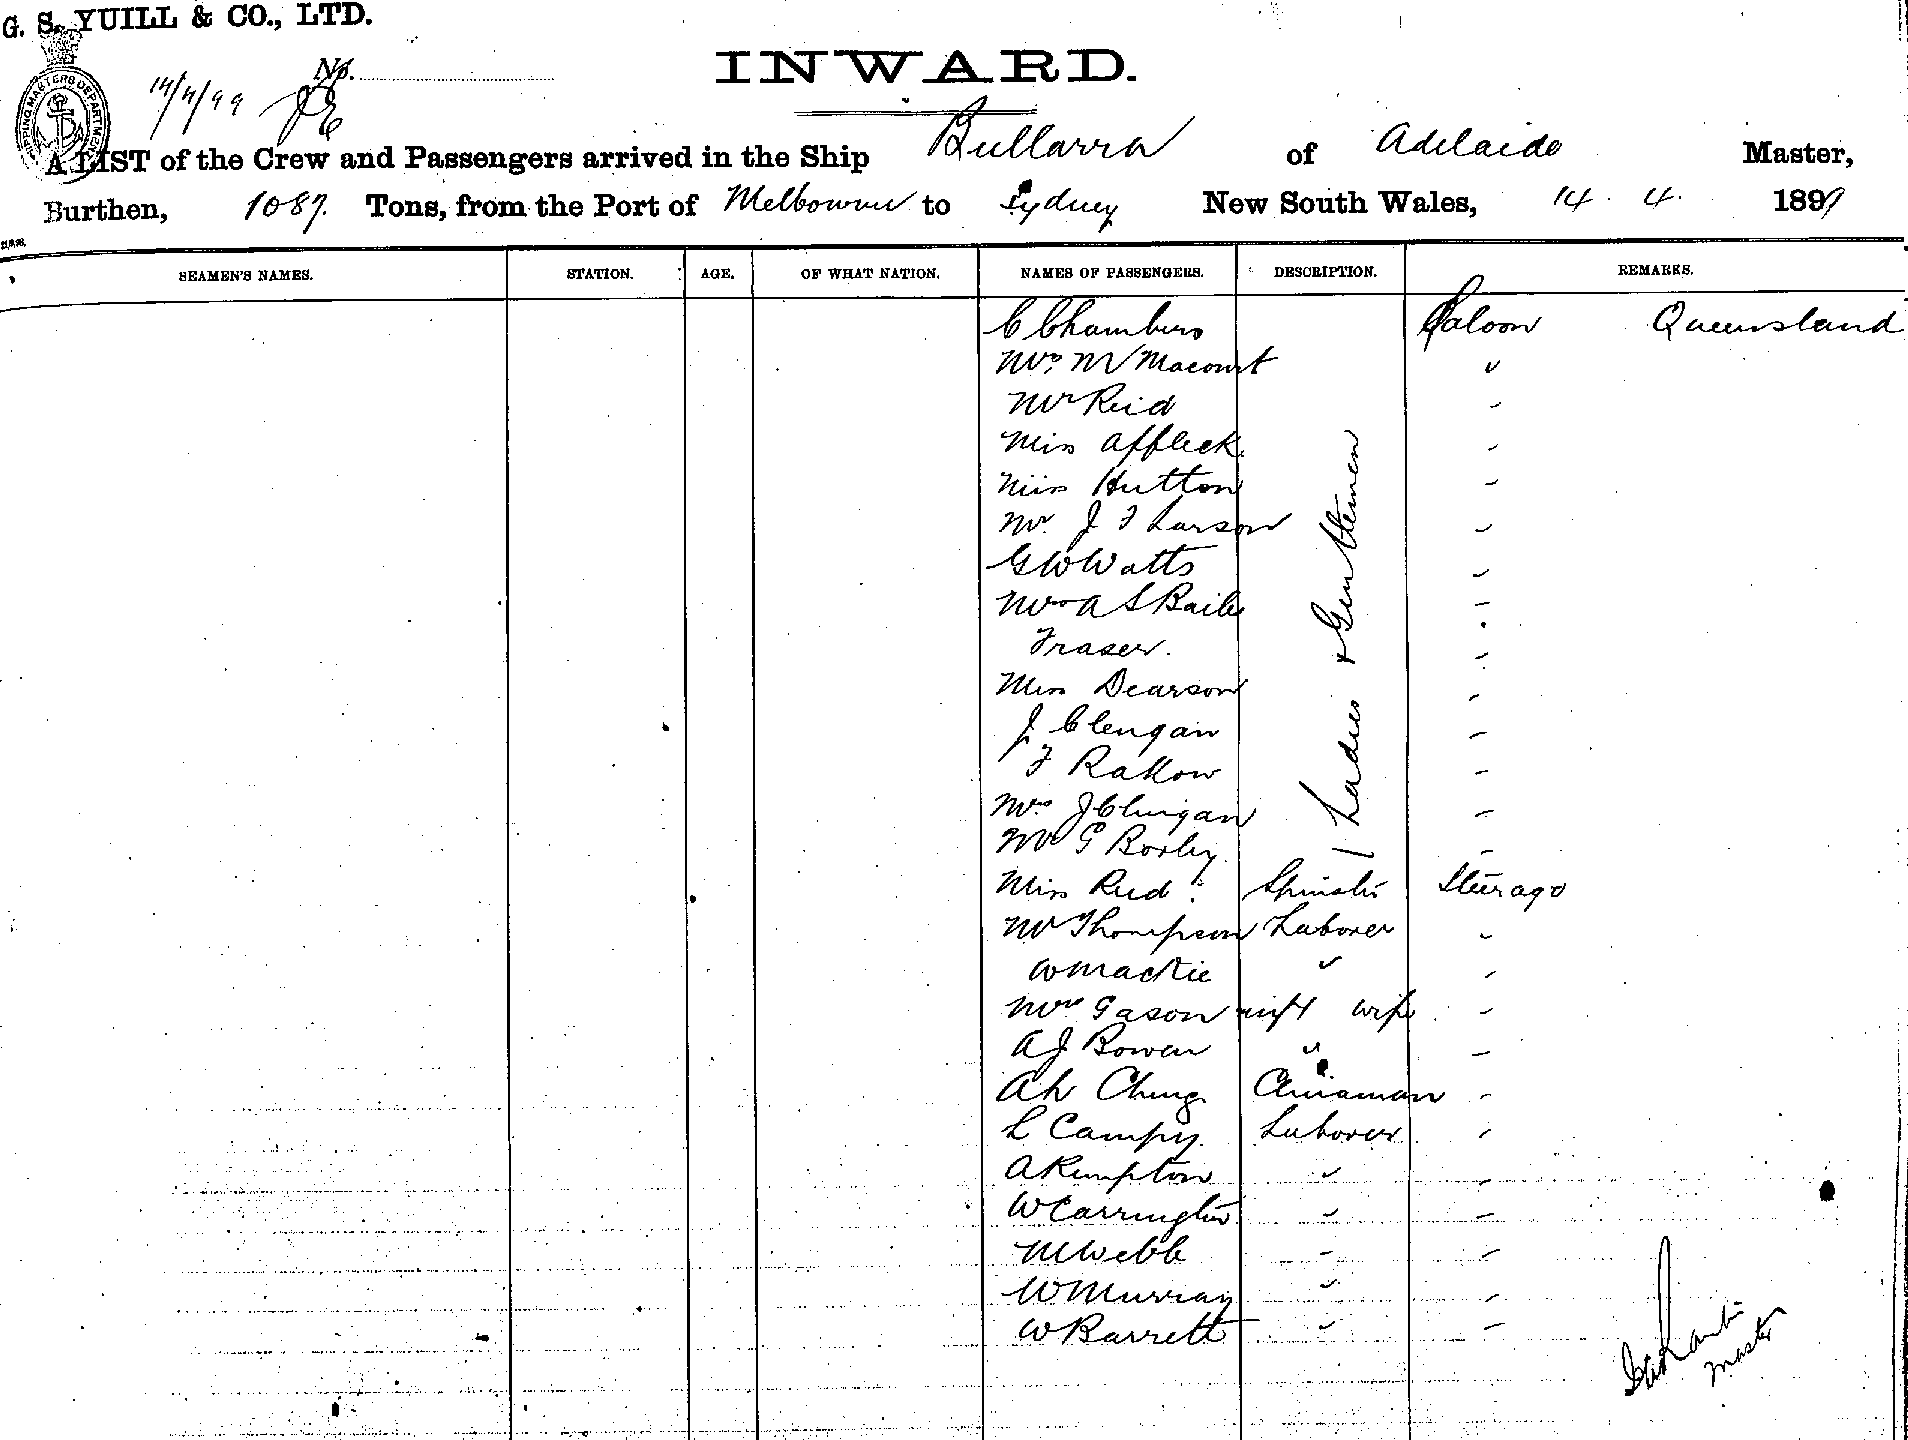 G. S. YUILL & CO., LTD.
INWARD.
No.
14/4/99 JE
A LIST of the Crew and Passengers arrived in the Ship Bullarra of Adelaide Master,
Burthen, 1087. Tons, from the Port of Melbourne to Sydney New South Wales, 14. 4. 1899
SEAMEN'S NAMES. STATION. AGE. OF WHAT NATION. NAMES OF PASSENGERS. DESCRIPTION. REMARKS.
C Chambers Saloon Queensland
Mrs. M Macourt "
Mr Reid "
Miss Affleck "
Miss Hutton "
Mr. J F Larson "
G W Watts "
A S Baile "
Fraser. "
Miss Dearson "
J Clengan "
F Rakow "
Mrs J Clengan "
Mr G Boxley "
Ladies & Gentlemen
Miss Reid Spinster Steerage
Mr Thompson Laborer "
W Mackie " "
Mrs Gason wife "
A J Bowen " "
Ah Ching Chinaman "
L Campy Laborer "
A Kempton " "
W Carrington " "
M Webb " "
W Murray " "
W Barrett " "
Master